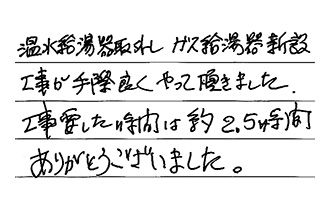 温水給湯器取外し ガス給湯器新設
工事が手際良くやって頂きました.
工事要した時間は約2.5時間
ありがとうございました。